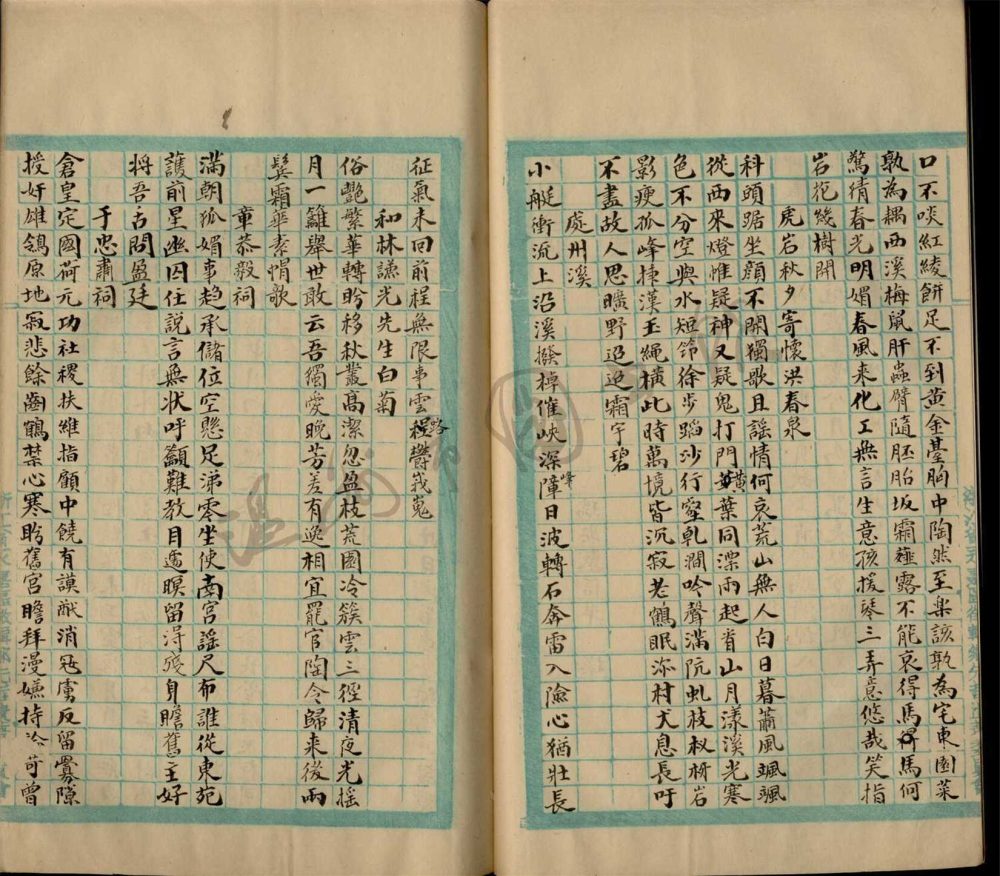 口不啖紅綾餅足不到黃金臺胸中陶然至樂該孰為宅東園菜
孰為耦西溪梅鼠肝蟲臂隨胚胎坂霜薤露不能哀得馬得馬何
驚猜春光明媚春風來化工無言生意孩援琴三弄意悠哉笑指
岩花幾樹開
虎岩秋夕寄懷洪春泉
科頭踞坐顏不開獨歌且謠情何哀荒山無人白日暮蕭風颯颯
從西來燈惟疑神又疑鬼打門黃葉同漂雨起看山月漾溪光寒
色不分空與水短筇徐步蹈沙行壑乹澗吟聲滿阬虬枝杈枒岩
影瘦孤峰揀漢玉繩橫此時萬境皆沉寂老鶴眠沵村犬息長吁
不盡故人思曠野迢迢霜宇碧
處州溪
小艇衝流上沿溪撥棹催峽深障峰日波轉石奔雷入險心猶壯長
征氣未回前程無限事雲程路鬱峩嵬
和林謙光先生白菊
俗艷繁華轉盻移秋叢高潔忽盈枝荒園冷簇雲三徑清夜光搖
月一籬舉世敢云吾獨愛晚芳差有逸相宜罷官陶令歸來後兩
鬢霜華素帽欹
章恭毅祠
滿朝狐媚事趋承儲位空懸足涕零坐使南宮謠尺布誰從東苑
護前星幽囚任說言無状呼籲難教目遽暝留淂殘身瞻舊主好
将吾古問盈廷
于忠肅祠
倉皇定國荷元功社稷扶維指顧中饒有謨猷消冦虜反留釁隙
授奸雄鴒原地寂悲餘齒鶴禁心寒盻舊宮瞻拜漫嫌持冷苛曾